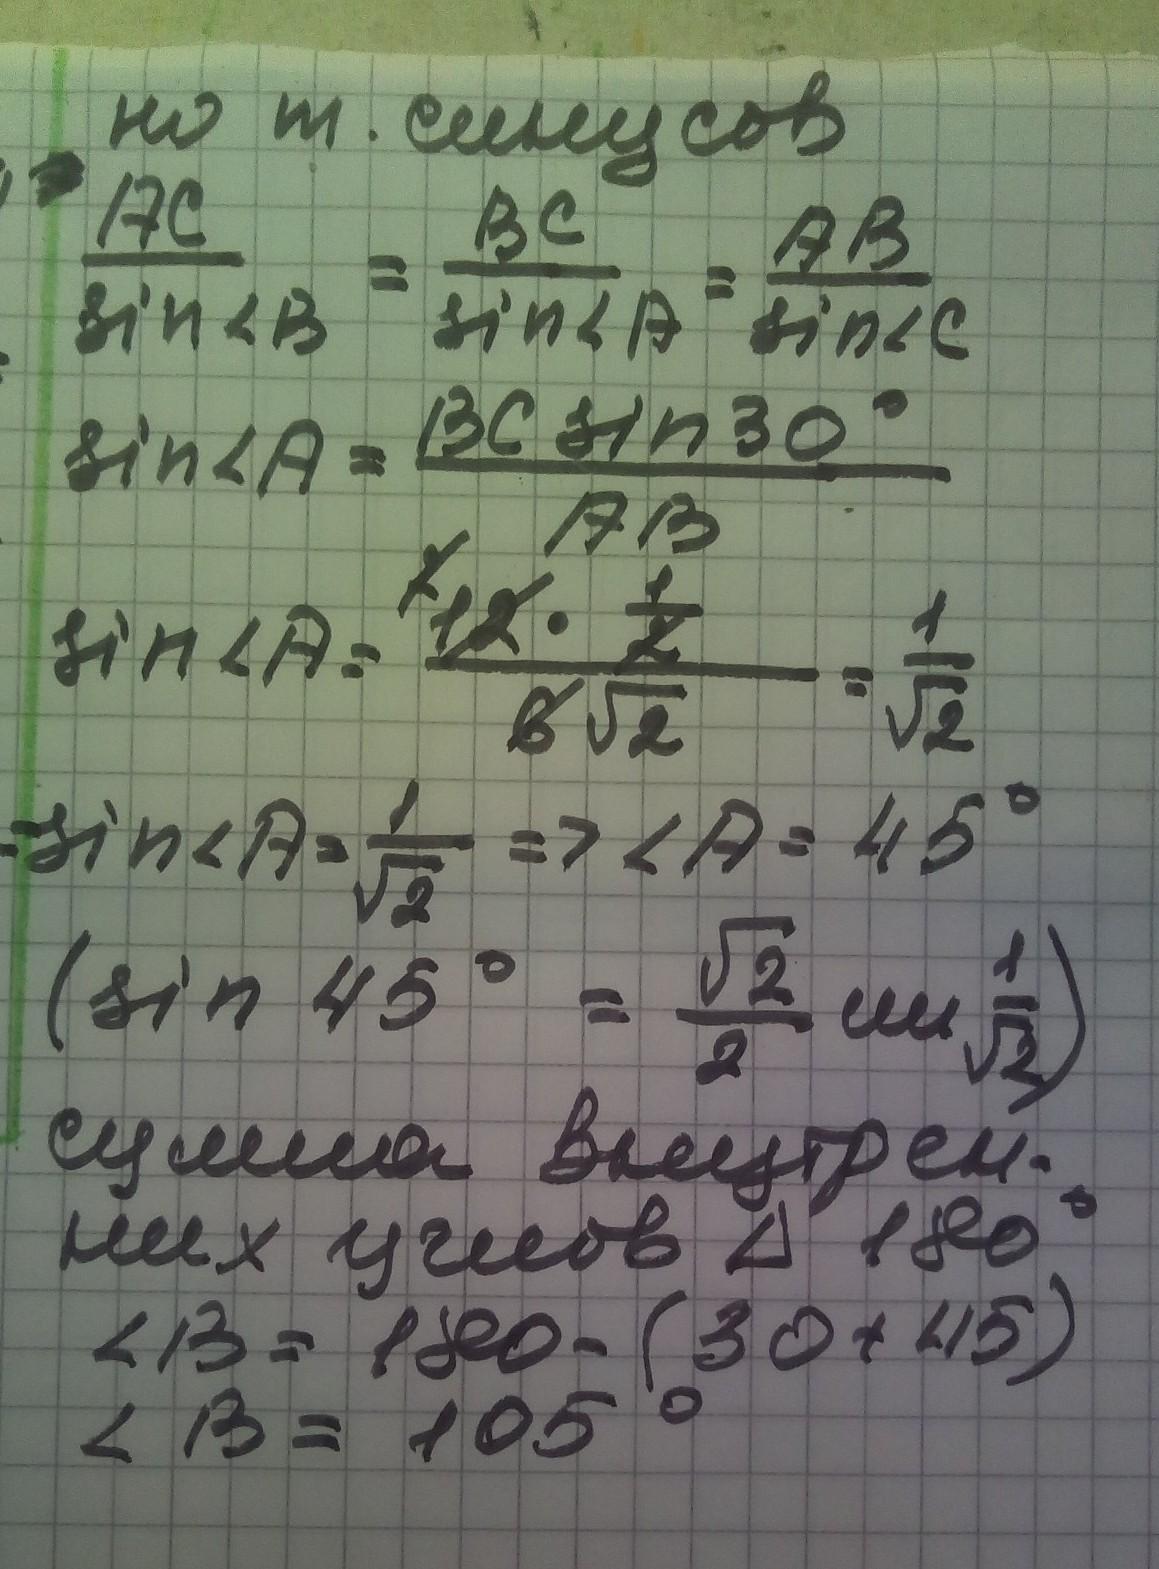 по т. синусов
AC/sin<B = BC/sin<A = AB/sin<C
sin<A = BC sin30°/AB
sin<A = (12 · 1/2)/(6√2) = 1/√2
=sin<A = 1/√2 => <A = 45°
(sin 45° = √2/2 или 1/√2)
сумма внутрен-
них углов Δ 180°
<B = 180 - (30+45)
<B = 105°